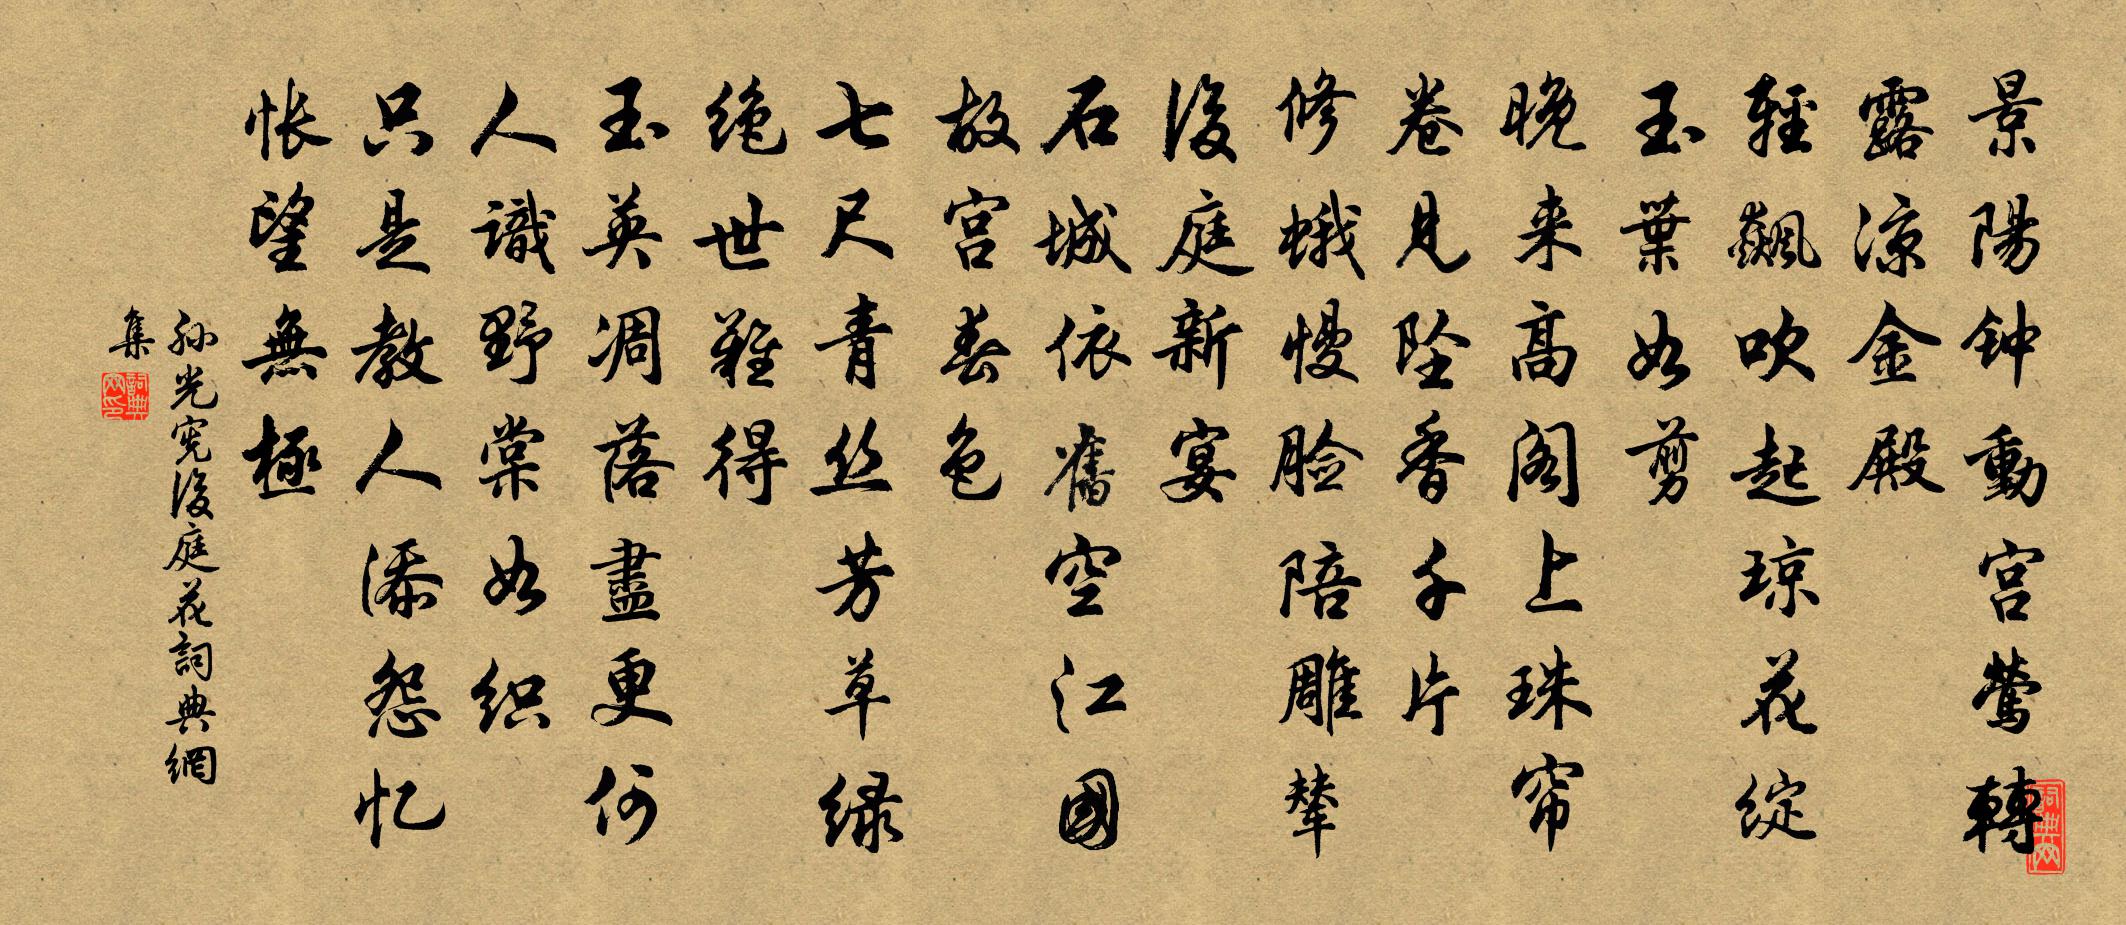 景陽钟動宫莺轉
露涼金殿
輕飆吹起琼花綻
玉葉如剪
晚来高阁上珠帘
卷見坠香千片
修蛾慢脸陪雕辇
後庭新宴
石城依舊空江國
故宫春色
七尺青丝芳草绿
绝世難得
玉英凋落盡更何
人識野棠如织
只是教人添怨忆
怅望無極
孙光宪後庭花詞典網
集
詞典网印
词典网